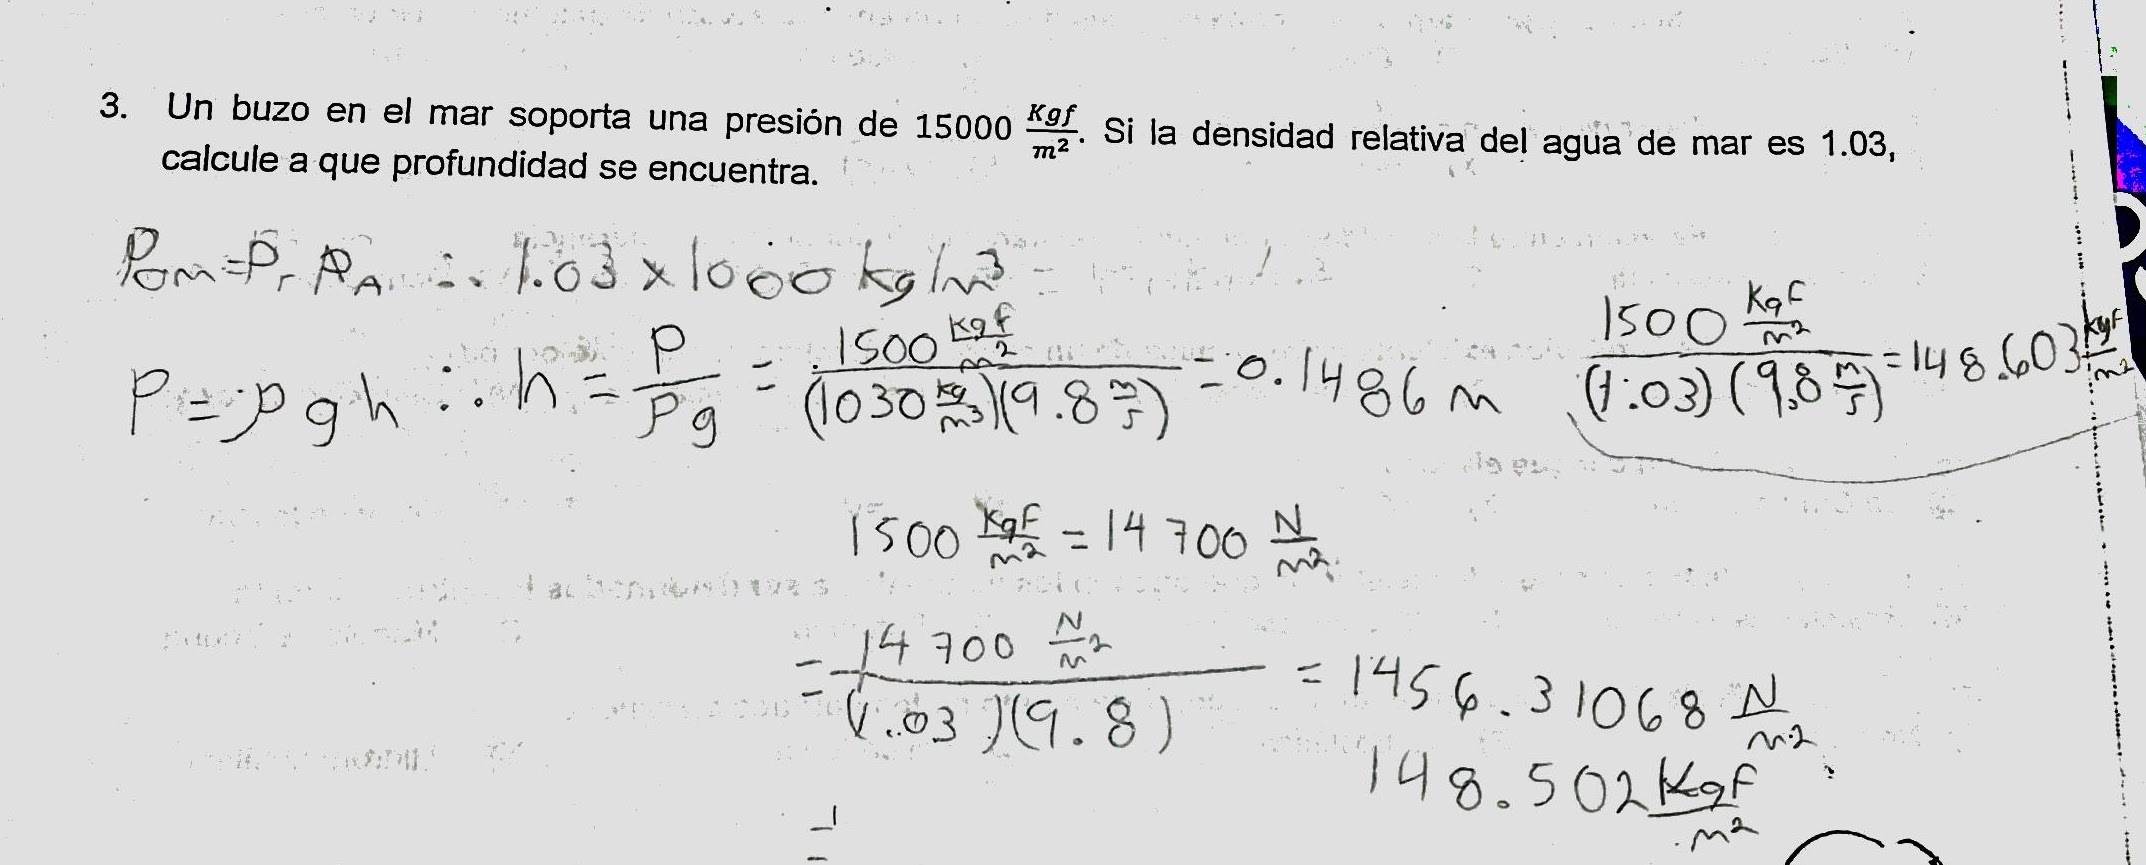 3. Un buzo en el mar soporta una presión de 15000 Kgf/m². Si la densidad relativa del agua de mar es 1.03,
calcule a que profundidad se encuentra.
Pom=Pr PA ∴ 1.03 x 1000 kg/m³
P=ρgh ∴ h = P/ρg = 1500 Kgf/m² / (1030 kg/m³)(9.8 m/s) = 0.1486 m
1500 Kgf/m² / (1.03)(9.8 m/s) = 148.603 kgf/m²
1500 Kgf/m² = 14 700 N/m²
= 14 700 N/m² / (1.03)(9.8) = 1456.31068 N/m²
148.502 Kgf/m²